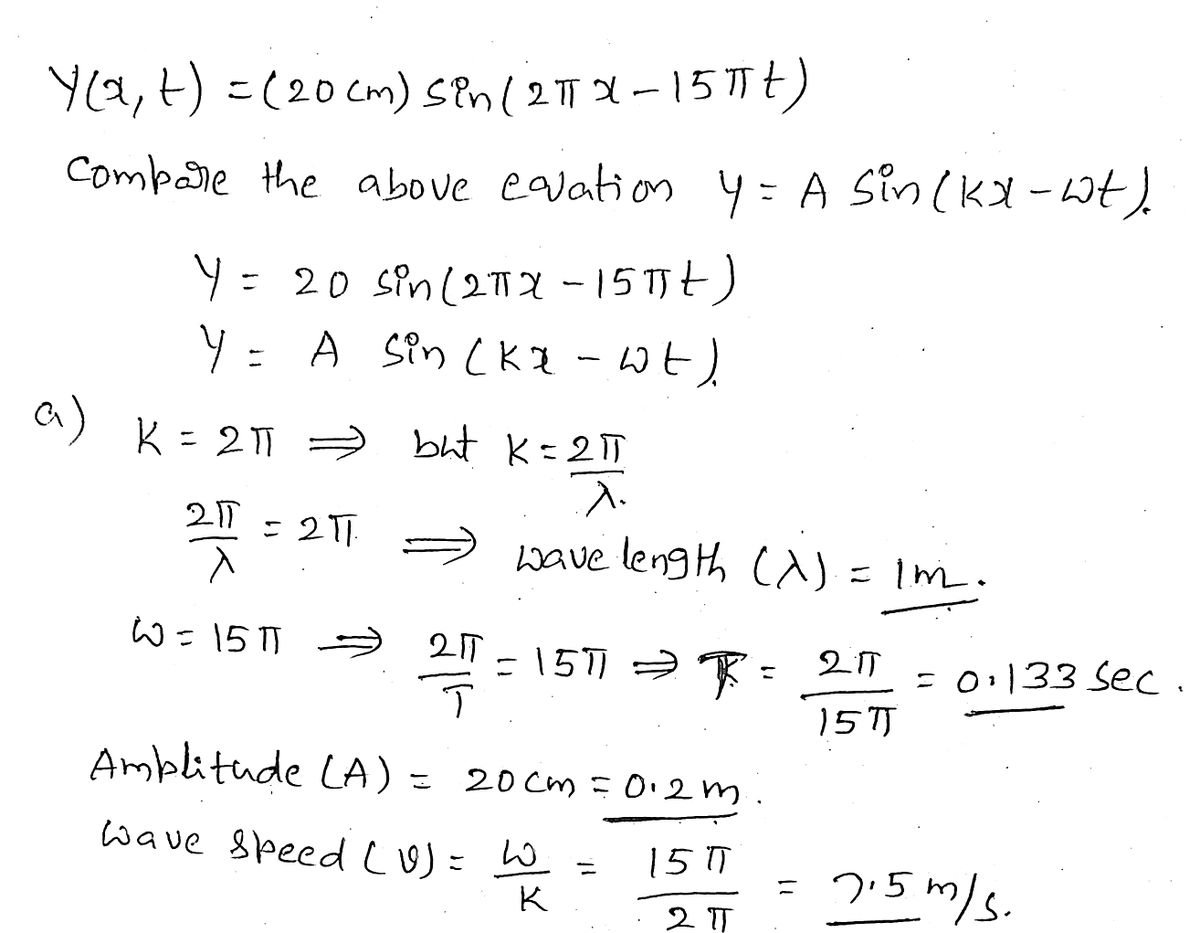 Y(x, t) = (20 cm) sin(2π x - 15π t)
Compare the above equation y = A sin(kx - ωt).
Y = 20 sin(2πx - 15πt)
Y = A sin(kx - ωt).
a) K = 2π ⇒ but K = 2π/λ.
2π/λ = 2π. ⇒ wave length (λ) = 1m.
ω = 15π ⇒ 2π/T = 15π ⇒ T = 2π/15π = 0.133 sec.
Amplitude (A) = 20 cm = 0.2 m.
wave speed (v) = ω/K = 15π/2π = 7.5 m/s.